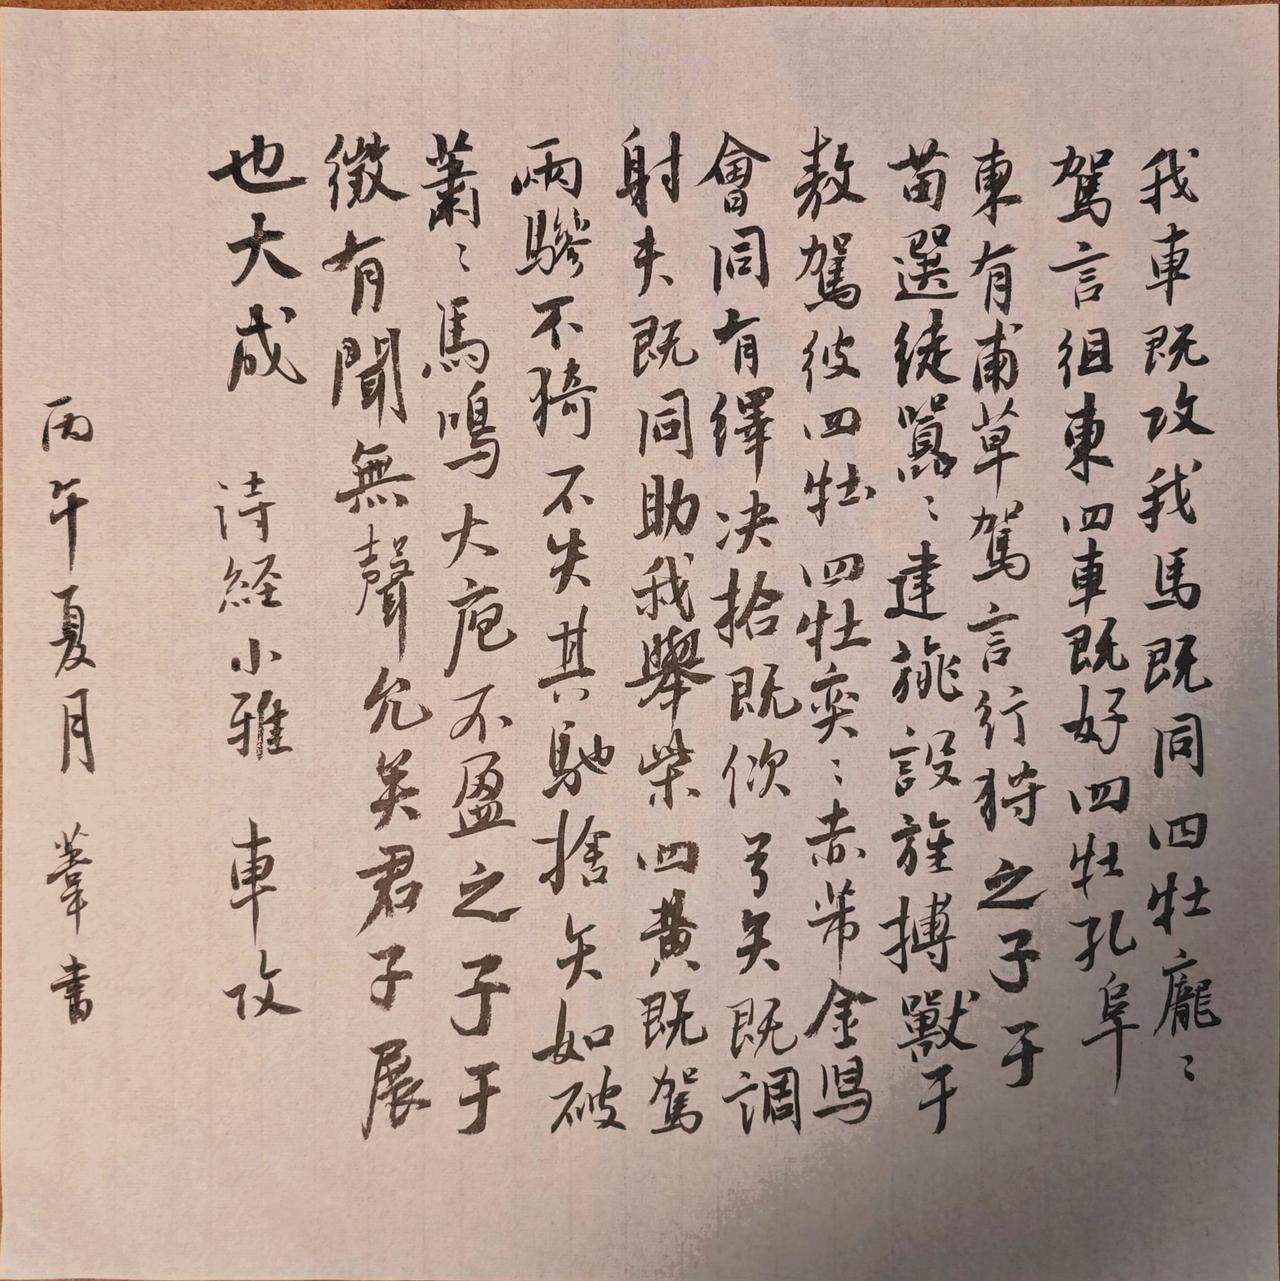 我車既攻我馬既同四牡龐〻
駕言徂東四車既好四牡孔阜
東有甫草駕言行狩之子于
苗選徒囂〻建旐設旄搏獸于
敖駕彼四牡四牡奕〻赤芾金舄
會同有繹决拾既佽弓矢既調
射夫既同助我舉柴四黄既駕
兩驂不猗不失其馳捨矢如破
蕭〻馬鳴大庖不盈之子于
徴有聞無聲允矣君子展
也大成 詩経小雅 車攻
丙午夏月 葦書